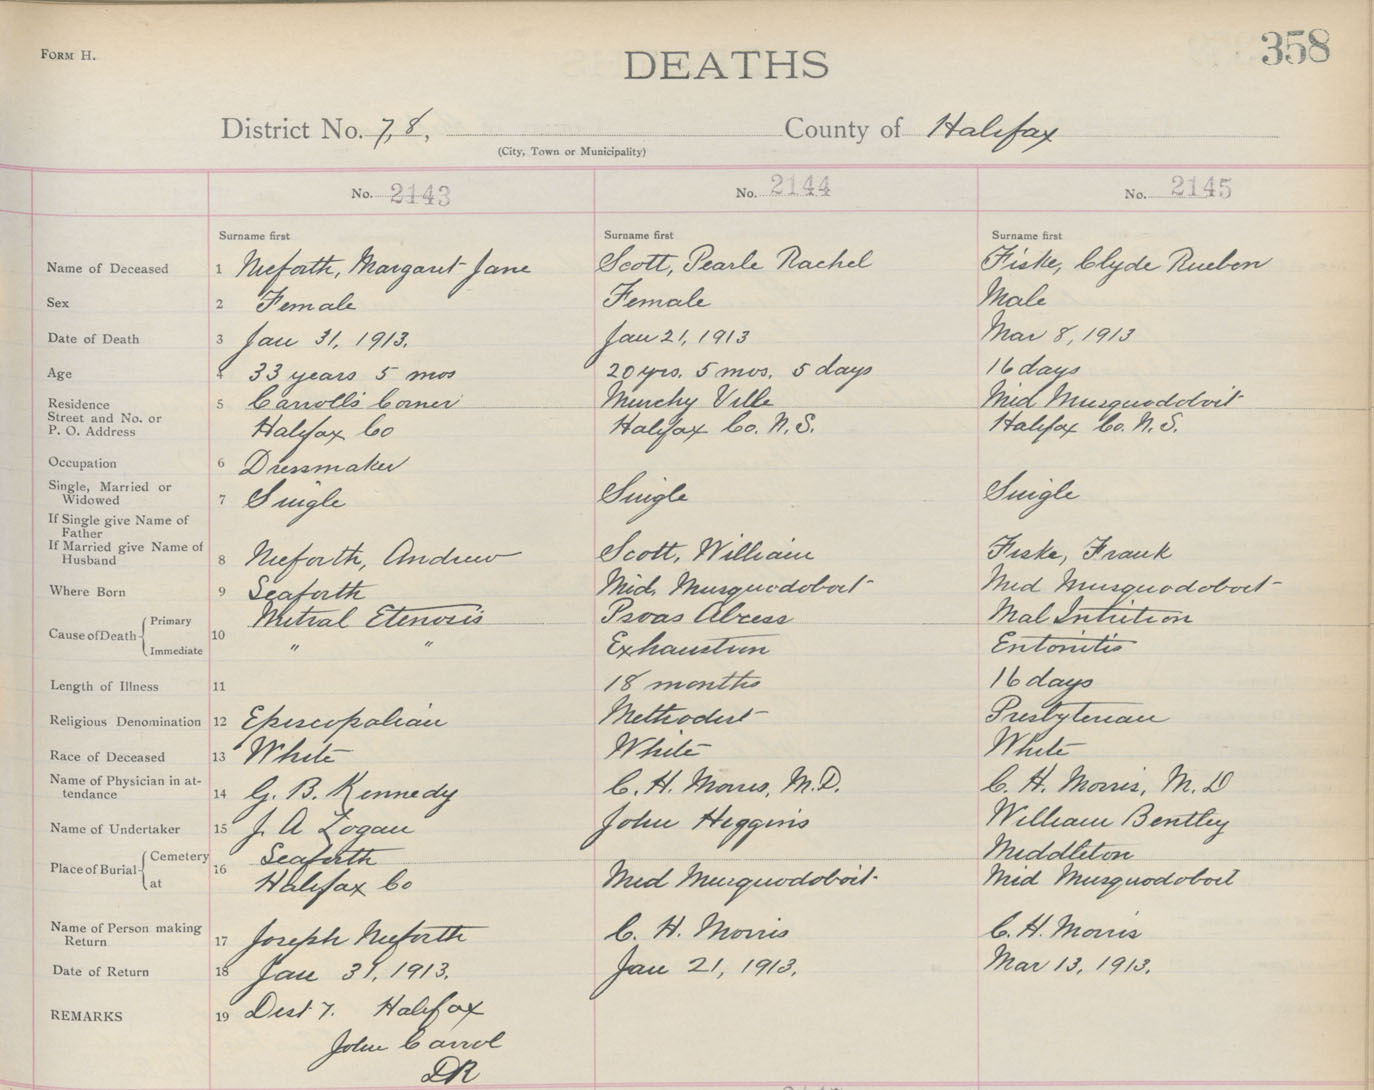 FORM H.
DEATHS
358
District No. 7, 8, County of Halifax
(City, Town or Municipality)
No. 2143 No. 2144 No. 2145
Surname first Surname first Surname first
Name of Deceased 1 Nieforth, Margaret Jane Scott, Pearle Rachel Fiske, Clyde Ruebon
Sex 2 Female Female Male
Date of Death 3 Jan 31, 1913. Jan 21, 1913 Mar 8, 1913
Age 4 33 years 5 mos 20 yrs. 5 mos. 5 days 16 days
Residence 5 Carroll's Corner Murchy Ville Mid Musquodoboit
Street and No. or
P. O. Address Halifax Co Halifax Co. N.S. Halifax Co. N.S.
Occupation 6 Dressmaker
Single, Married or
Widowed 7 Single Single Single
If Single give Name of
Father
If Married give Name of
Husband 8 Nieforth, Andrew Scott, William Fiske, Frank
Where Born 9 Seaforth Mid. Musquodoboit Mid Musquodoboit
Cause of Death Primary 10 Mitral Etenosis Psoas Abcess Mal Intrition
Immediate " " Exhaustion Entoritis
Length of Illness 11 18 months 16 days
Religious Denomination 12 Episcopalian Methodist Presbyterian
Race of Deceased 13 White White White
Name of Physician in at-
tendance 14 G. B. Kennedy C. H. Morris, M.D. C. H. Morris, M.D
Name of Undertaker 15 J. A Logan John Higgins William Bentley
Place of Burial Cemetery 16 Seaforth Middleton
at Halifax Co Mid Musquodoboit. Mid Musquodoboit
Name of Person making
Return 17 Joseph Nieforth C. H. Morris C. H. Morris
Date of Return 18 Jan 31, 1913. Jan 21, 1913. Mar 13, 1913.
REMARKS 19 Dist 7. Halifax
John Carrol
DR